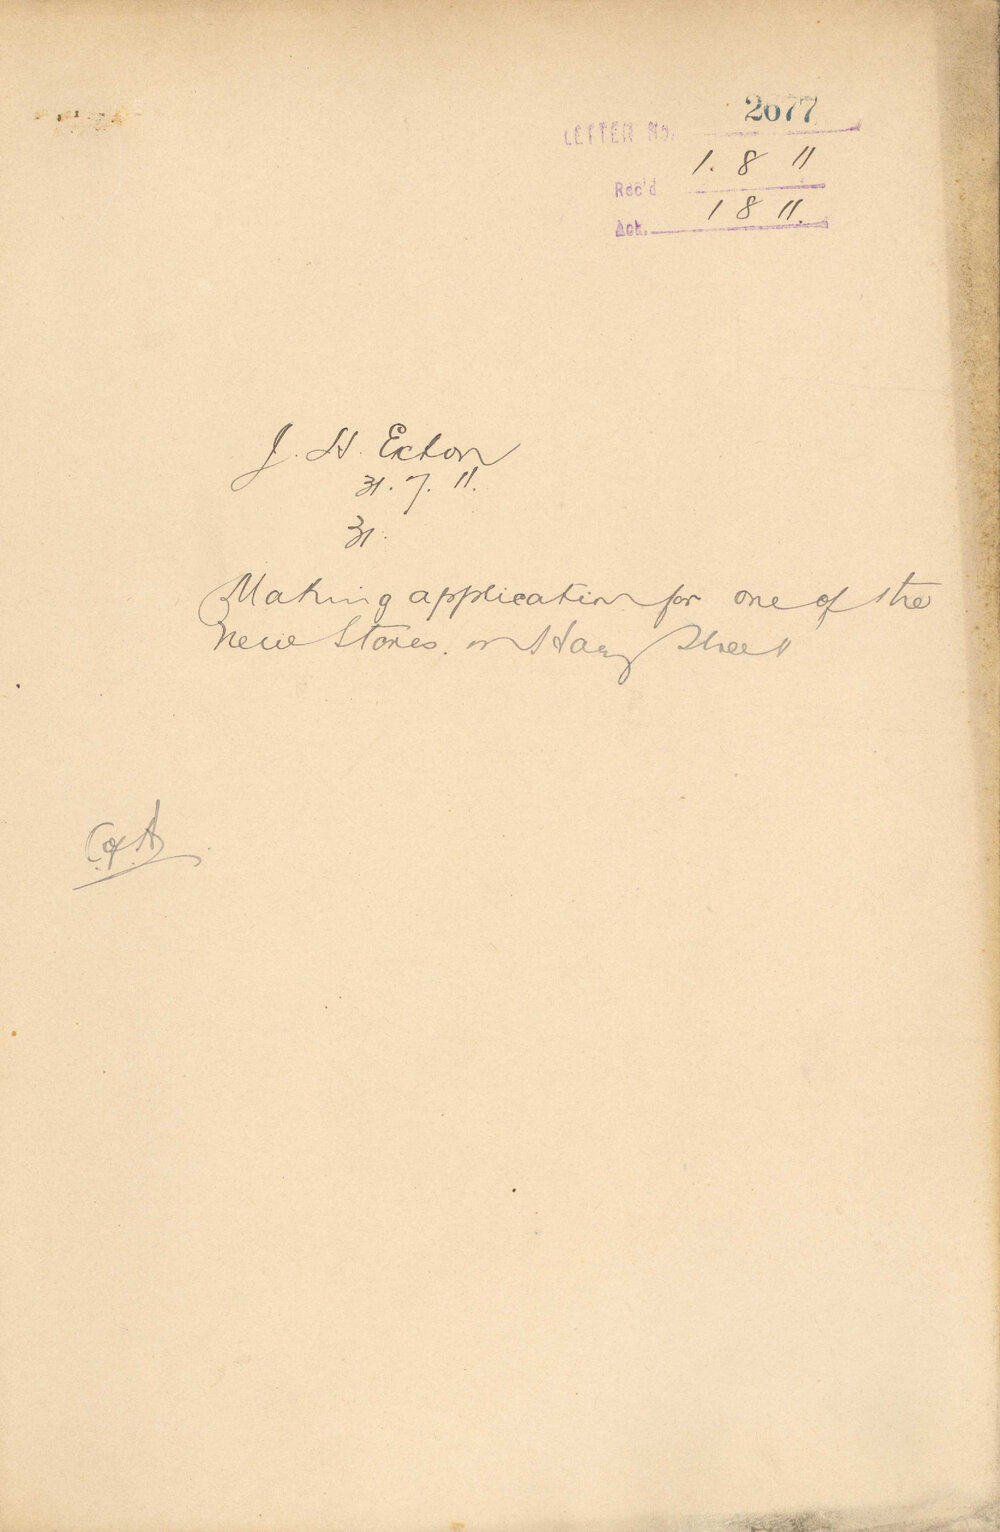 2677
LETTER No.
1. 8 11
Rec'd
1 8 11.
Ack.
J. H. Ecton
31. 7. 11.
31.
Making application for one of the
new Stores. on Hay Street